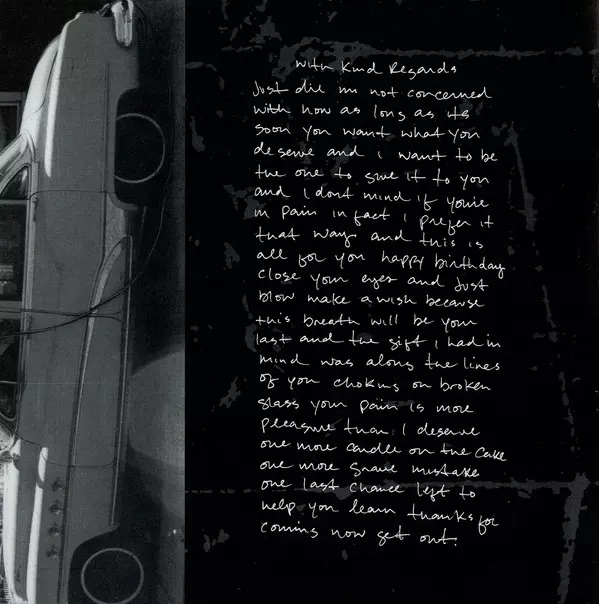 with Kind Regards
Just die im not concerned
with how as long as its
soon you want what you
deserve and i want to be
the one to give it to you
and I dont mind if you're
in pain in fact i prefer it
that way and this is
all for you happy birthday
close your eyes and just
blow make a wish because
this breath will be your
last and the gift i had in
mind was along the lines
of you choking on broken
glass your pain is more
pleasure than I deserve
one more candle on the cake
one more grave mistake
one last chance left to
help you learn thanks for
coming now get out.